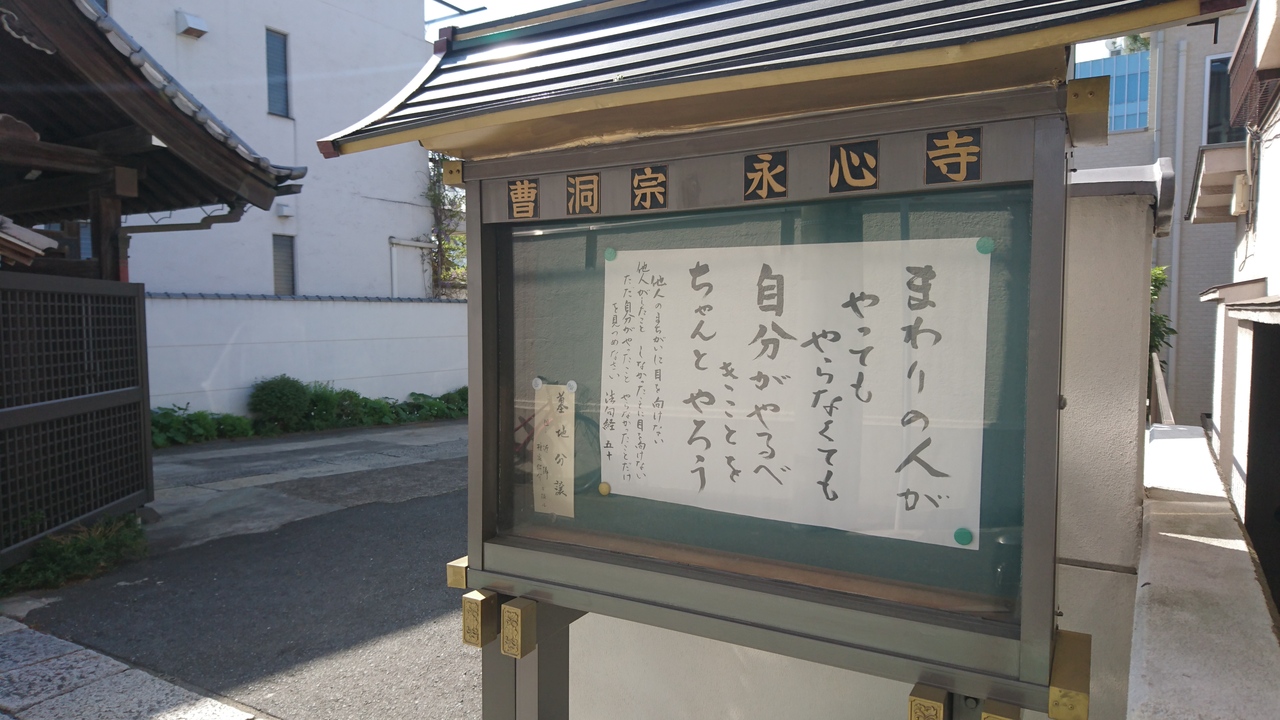 曹洞宗 永心寺
まわりの人が
やっても
やらなくても
自分がやるべ
きことを
ちゃんと やろう
他人のまちがいに目を向けない
他人がしたこと しなかったことに目を向けない
ただ自分がやったこと やらなかったことだけ
を見つめなさい 法句経 五十
墓地分譲